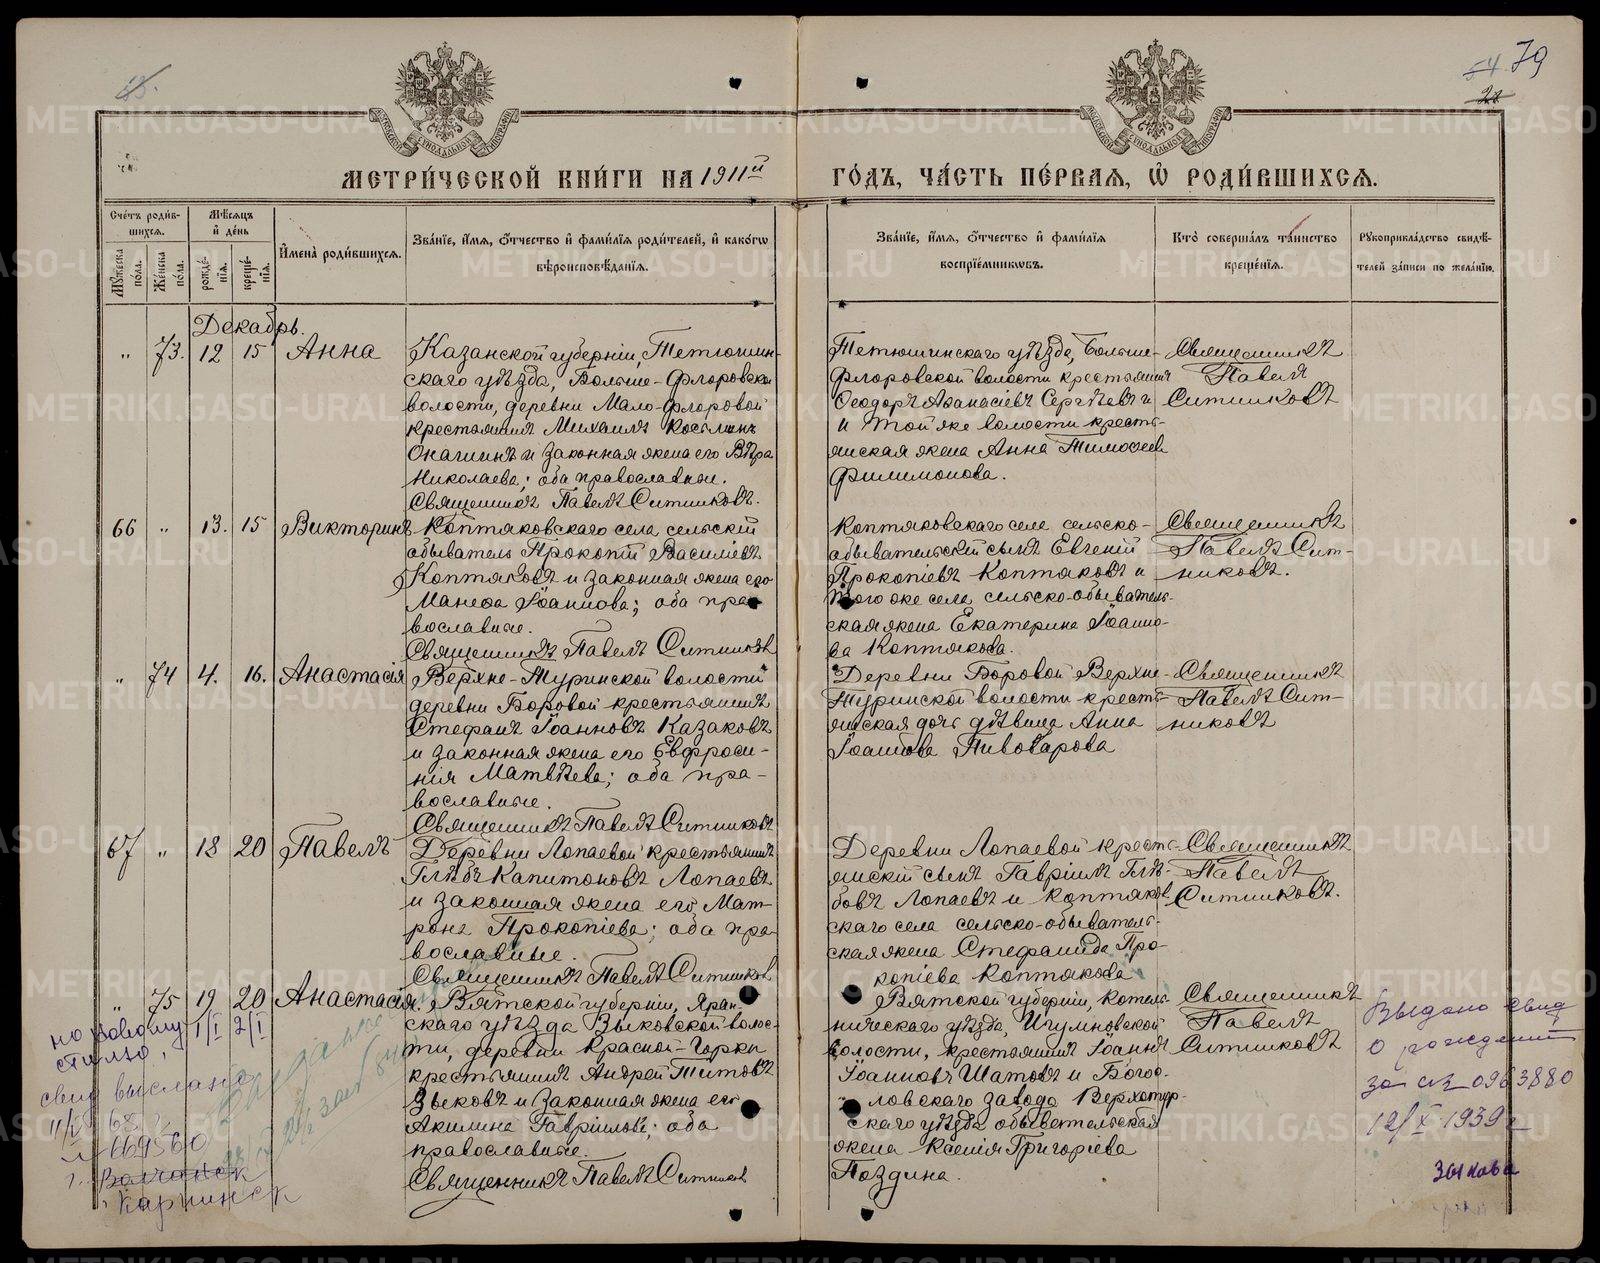 54 79
МЕТРИ́ЧЕСКОЙ КНИ́ГИ НА 1911й ГО́ДЪ, ЧА́СТЬ ПЕ́РВАЯ, Ѡ РОДИ́ВШИХСЯ.
Сче́тъ роди́в-
шихся.
Му́жеска по́ла.
Же́нска по́ла.
Мѣ́сяцъ
и де́нь
рожде́-
нія.
креще́-
нія.
Имена̀ роди́вшихся.
Зва́ніе, и́мя, о́тчество и фами́лія роди́телей, и како́гѡ
вѣроисповѣ́данія.
Зва́ніе, и́мя, о́тчество и фами́лія
воспріе́мникѡвъ.
Кто̀ соверша́лъ та́инство
креще́нія.
Рукоприкла́дство свидѣ́-
телей за́писи по жела́нію.
Декабрь.
" 73. 12 15 Анна
Казанской губерніи, Тетюшин-
скаго уѣзда, Больше-Флоровской
волости, деревни Мало-Флоровой
крестьянинъ Михаилъ Косьминъ
Онашинъ и законная жена его Вѣра
Николаева; оба православные.
Священникъ Павелъ Ситниковъ.
Тетюшинскаго уѣзда, Больше-
Флоровской волости крестьянинъ
Ѳеодоръ Аѳанасіевъ Сергѣевъ и
и той же волости кресть-
янская жена Анна Тимоѳеева
Филимонова.
Священникъ
Павелъ
Ситниковъ
66 " 13. 15 Викторинъ
Коптяковскаго села, сельскій
обыватель Прокопій Василіевъ
Коптяковъ и законная жена его
Манефа Іоаннова; оба пра-
вославные.
Священникъ Павелъ Ситниковъ
Коптяковскаго села сельско-
обывательскій сынъ Евгеній
Прокопіевъ Коптяковъ и
того же села сельско-обыватель-
ская жена Екатерина Іоанно-
ва Коптякова.
Священникъ
Павелъ Сит-
никовъ.
" 74 4. 16. Анастасія
Верхне-Туринской волости
деревни Боровой крестьянинъ
Стефанъ Іоанновъ Казаковъ
и законная жена его Евфроси-
нія Матвѣева; оба пра-
вославные.
Священникъ Павелъ Ситниковъ
Деревни Боровой Верхне-
Туринской волости кресть-
янская дочь дѣвица Анна
Іоаннова Пивоварова
Священникъ
Павелъ Сит-
никовъ
67 " 18 20 Павелъ
Деревни Лопаевой крестьянинъ
Глѣбъ Капитоновъ Лопаевъ
и законная жена его Мат-
рона Прокопіева; оба пра-
вославные.
Священникъ Павелъ Ситниковъ
Деревни Лопаевой кресть-
янскій сынъ Гавріилъ Глѣ-
бовъ Лопаевъ и Коптяков-
скаго села сельско-обыватель-
ская жена Стефанида Про-
копіева Коптякова
Священникъ
Павелъ
Ситниковъ.
" 75 19 20 Анастасія.
Вятской губерніи, Яран-
скаго уѣзда Зыковской волос-
ти, деревни Красной-Горки
крестьянинъ Андрей Титовъ
Зыковъ и законная жена его
Акилина Гавріилова; оба
православные.
Священникъ Павелъ Ситниковъ
Вятской губерніи, Котель-
ническаго уѣзда, Игумновской
волости, крестьянинъ Іоаннъ
Іоанновъ Шатовъ и Богос-
ловскаго завода Верхотур-
скаго уѣзда обывательская
жена Ксенія Григоріева
Поздина.
Священникъ
Павелъ
Ситниковъ
по новому 1/I 2/I
стилю.
свид выслано
г. Волчанск
г. Карпинск
Выдано свид
о рождении
за № 0963880
12/X 1939 г
Зыкова